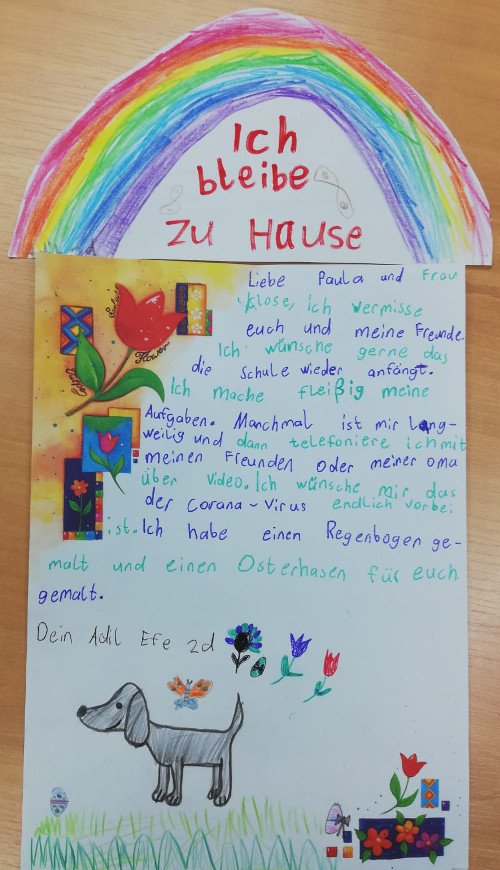 Ich
bleibe
zu Hause
Liebe Paula und Frau
Klose, ich vermisse
euch und meine Freunde.
Ich wünsche gerne das
die Schule wieder anfängt.
Ich mache fleißig meine
Aufgaben. Manchmal ist mir lang-
weilig und dann telefoniere ich mit
meinen Freunden oder meiner oma
über video. Ich wünsche mir das
der Corana-Virus endlich vorbei
ist. Ich habe einen Regenbogen ge-
malt und einen Osterhasen für euch
gemalt.
Dein Adil Efe 2d
Flower